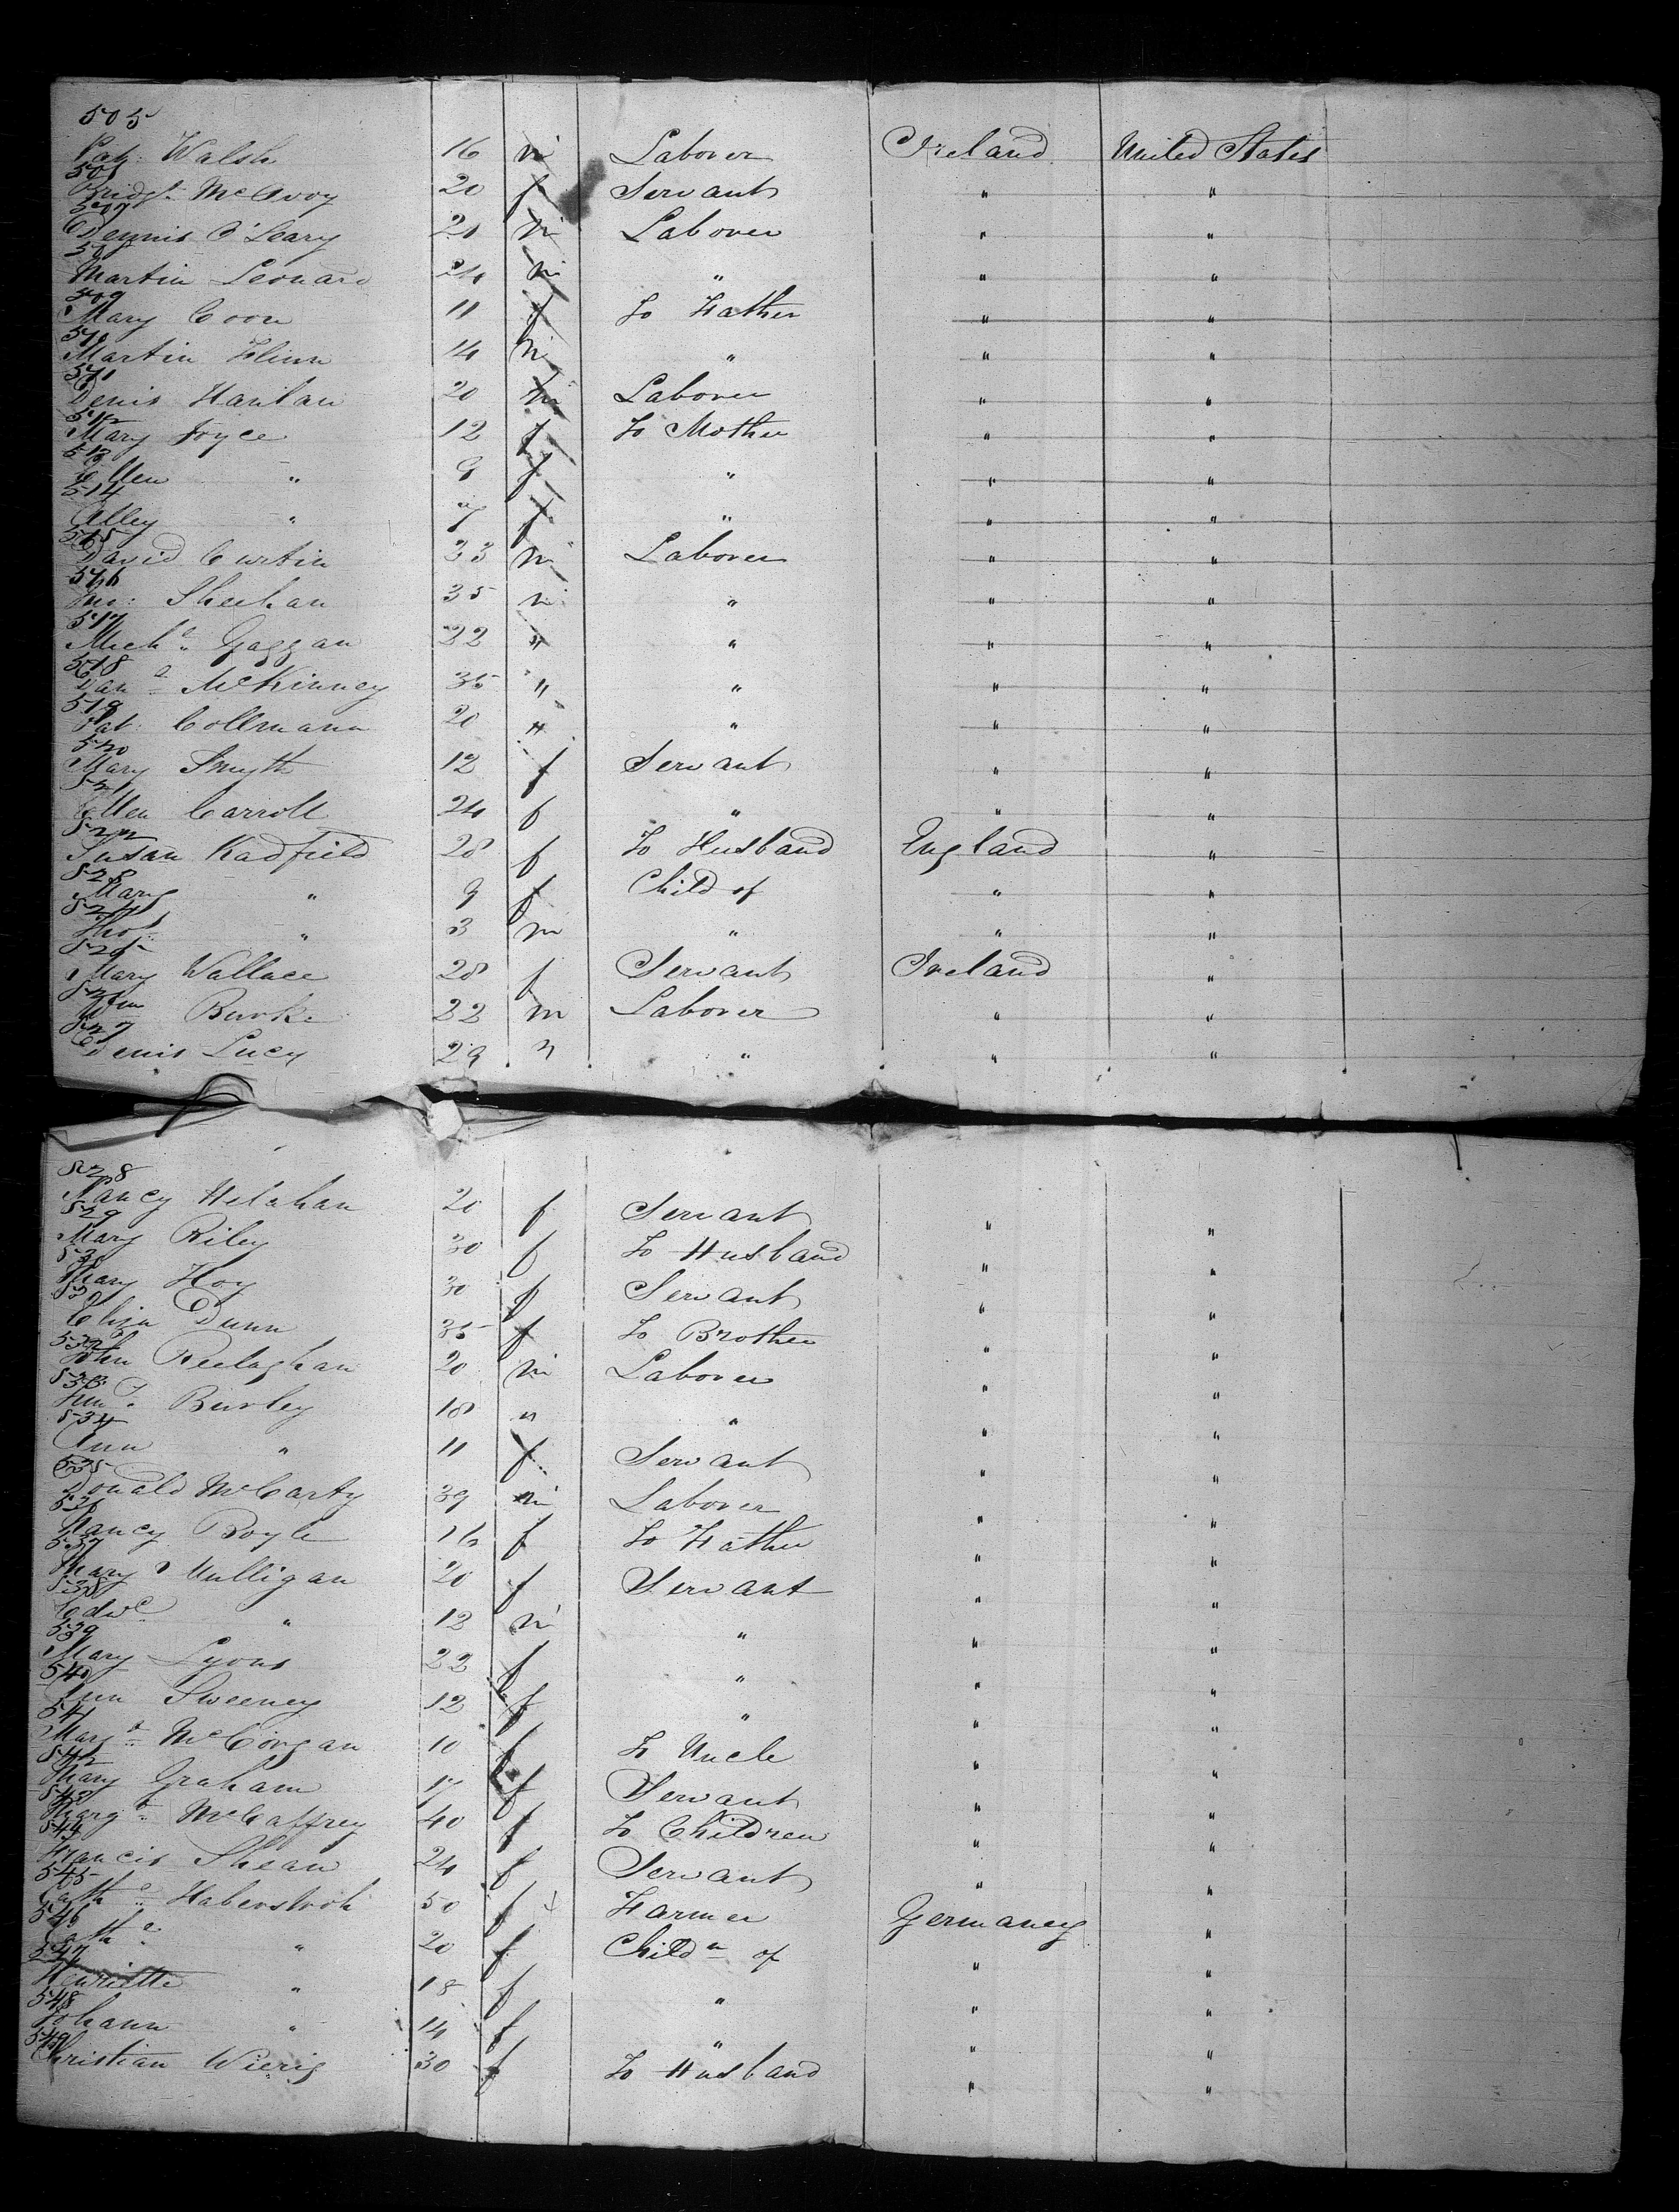 505
Pat: Walsh 16 m Laborer Ireland United States
506
Bridgt McAvoy 20 f Servant " "
507
Dennis O'Leary 20 m Laborer " "
508
Martin Leonard 24 m " " "
509
Mary Coon 11 f To Father " "
510
Martin Flinn 14 m " " "
511
Denis Hanlan 20 m Laborer " "
512
Mary Joyce 12 f To Mother " "
513
Ellen " 9 f " " "
514
Alley " 7 f " " "
515
David Curtin 23 m Laborer " "
516
Sheehan 35 m " " "
517
Michl Gaggan 22 " " " "
518
Danl McKinney 35 " " " "
519
Pat: Collmann 20 " " " "
520
Mary Smyth 12 f Servant " "
521
Ellen Carroll 24 f " " "
522
Susan Hadfield 28 f To Husband England "
523
Mary " 9 f Child of " "
524
Thos " 3 m " " "
525
Mary Wallace 28 f Servant Ireland "
526
Wm Burke 22 m Laborer " "
527
Denis Lucy 29 " " " "
528
Nancy Helahan 20 f Servant " "
529
Mary Riley 30 f To Husband " "
530
Mary Hoy 30 f Servant " "
531
Eliza Dunn 35 f To Brother " "
532
John Reelaghan 20 m Laborer " "
533
Burley 18 " " " "
534
Ann " 11 f Servant " "
535
Donald McCarty 39 m Laborer " "
536
Nancy Boyle 16 f To Father " "
537
Mary Mulligan 20 f Servant " "
538
Edwd " 12 m " " "
539
Mary Lyons 22 f " " "
540
Ann Sweeney 12 f " " "
541
Margt McCorgan 10 f To Uncle " "
542
Mary Graham 17 f Servant " "
543
Margt McCaffrey 40 f To Children " "
544
Francis Shean 24 f Servant " "
545
Cathe Haberstroh 50 f Farmer Germaney "
546
Cathe " 20 f Childn of " "
547
Henriette " 18 f " " "
548
Johann " 14 f " " "
549
Christian Wierig 30 f To Husband " "